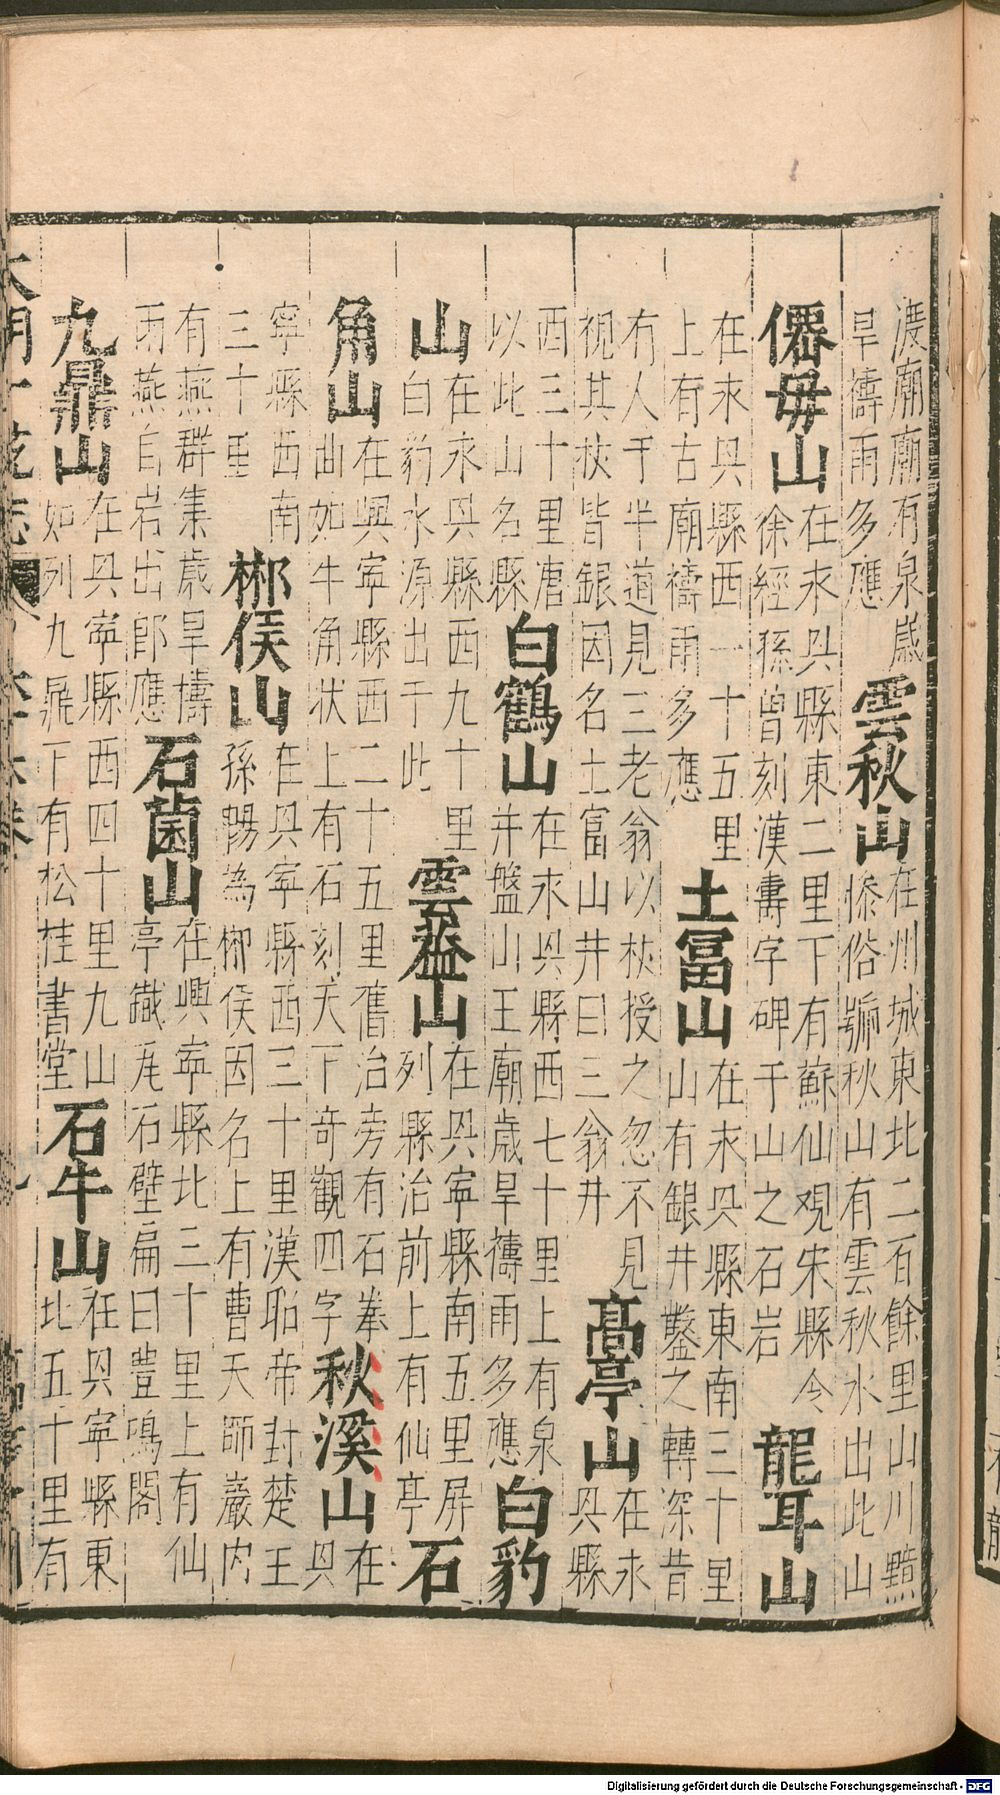 渡廟廟有泉歲
旱禱雨多應
雲秋山
在州城東北二百餘里山川黯
慘俗號秋山有雲秋水出此山
僊毋山
在永㒷縣東二里下有蘇仙观宋縣令
徐經孫曾刻漢壽字碑于山之石岩
龍耳山
在永㒷縣西一十五里
上有古廟禱雨多應
土富山
在永㒷縣東南三十里
山有銀井鑿之轉深昔
有人于半道見三老翁以杖授之忽不見
視其杖皆銀因名土富山井曰三翁井
高亭山
在永
㒷縣
西三十里唐
以此山名縣
白鶴山
在永㒷縣西七十里上有泉
井盤山王廟歲旱禱雨多應
白豹
山
在永㒷縣西九十里
白豹水源出于此
雲蓋山
在㒷寧縣南五里屏
列縣治前上有仙亭
石
角山
在興寧縣西二十五里舊治旁有石拳
曲如牛角狀上有石刻天下奇觀四字
秋溪山
在
㒷
寧縣西南
三十里
郴侯山
在㒷寧縣西三十里漢昭帝封楚王
孫暢為郴侯因名上有曹天師巖内
有燕群集歲旱禱
雨燕自岩出即應
石菌山
在興寧縣北三十里上有仙
亭鐵瓦石壁扁曰豊鳴閣
九鼎山
在㒷寧縣西四十里九山
如列九鼎下有松桂書堂
石牛山
在㒷寧縣東
北五十里有
Digitalisierung gefördert durch die Deutsche Forschungsgemeinschaft - DFG